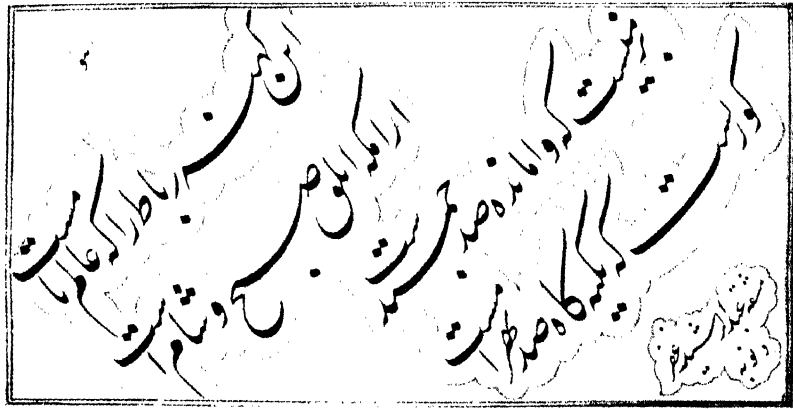 این کهنه رباط را که عالم نامست
ارامگه ابلق صبح و شام است
بزمیست که وامانده صد جمشیدست
گوریست که تکیه گاه صد بهرامست
مشقه عبدالرشید غفر
ذنوبه